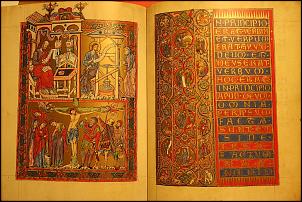 IN PRINCIPIO
ERAT VERBVM
ET VERBVM
ERAT APVD
DEVM ET
DEVS ERAT
VERBVM
HOC ERAT
IN PRINCIPIO
APVD DEVM
OMNIA
PER IPSVM
FACTA
SVNT ET
FACTVM